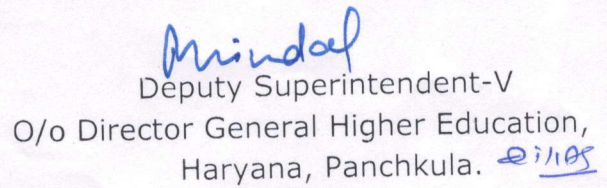 Deputy Superintendent-V
O/o Director General Higher Education,
Haryana, Panchkula.